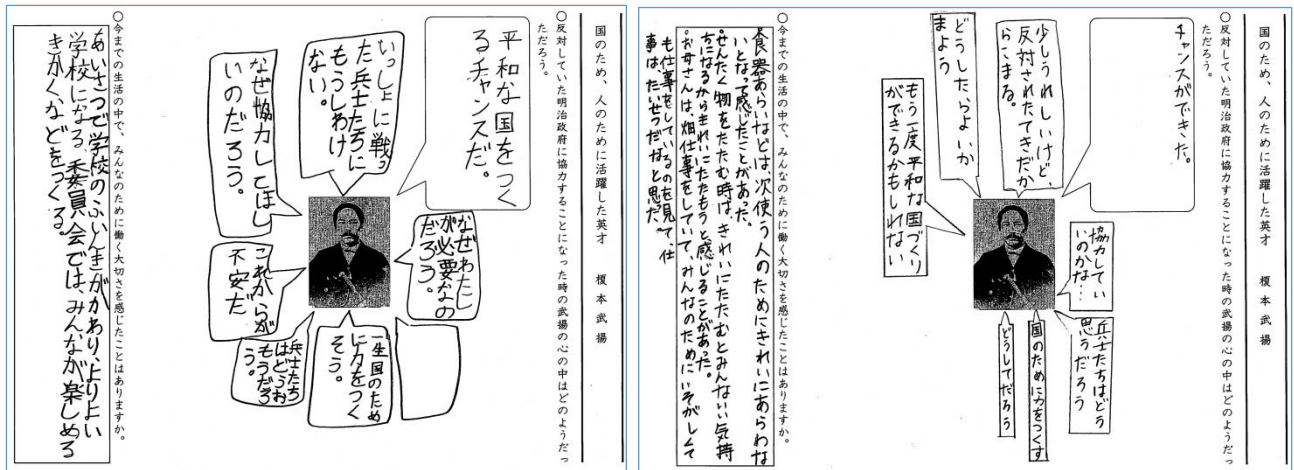 国のため、人のために活躍した英才　榎本武揚
○反対していた明治政府に協力することになった時の武揚の心の中はどのようだっ
ただろう。
平和な国をつく
るチャンスだ。
いっしょに戦っ
た兵士たちに
もうしわけ
ない。
なぜ協力してほし
いのだろう。
なぜわたし
が必要なの
だろう。
これからが
不安だ
兵士たち
はどうお
もうだろ
う。
一生国のため
に力をつく
そう。
○今までの生活の中で、みんなのために働く大切さを感じたことはありますか。
あいさつで学校のふんいきがかわり、よりよい
学校になる。委員会では、みんなが楽しめる
きかくなどをつくる。
国のため、人のために活躍した英才　榎本武揚
○反対していた明治政府に協力することになった時の武揚の心の中はどのようだっ
ただろう。
チャンスができた。
少しうれしいけど、
反対されたてきだか
らこまる。
どうしたらよいか
まよう
もう一度平和な国づくり
ができるかもしれない
協力してい
いのかな…
兵士たちはどう
思うだろう
国のために力をつくす
どうしてだろう
○今までの生活の中で、みんなのために働く大切さを感じたことはありますか。
食器あらいなどは、次使う人のためにきれいにあらわな
いとなって感じたことがあった。
せんたく物をたたむ時は、きれいにたたむとみんないい気持
ちになるからきれいにたたもうと感じることがあった。
お母さんは、畑仕事をしていて、みんなのためにいそがしくて
も仕事をしているのを見て、仕
事はたいせつだなと思った。